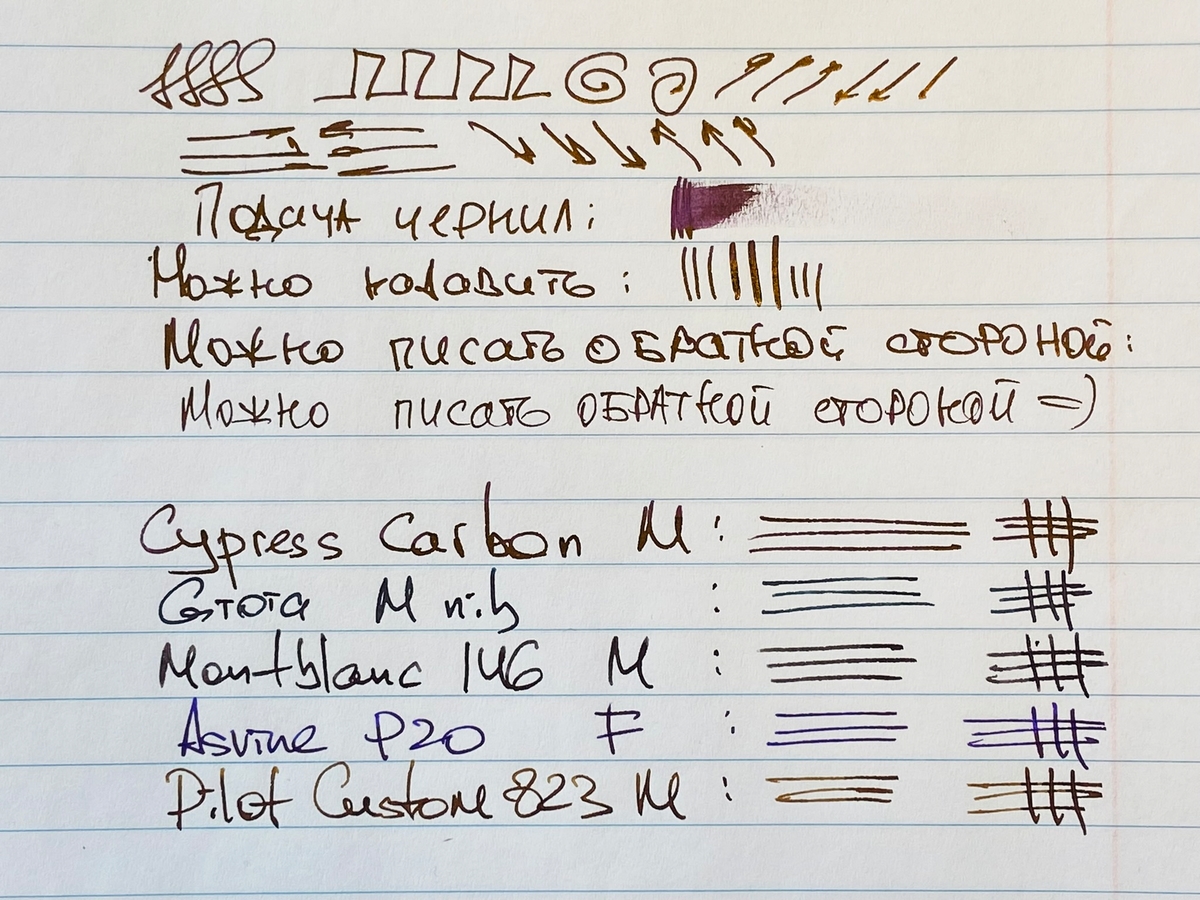 Подача чернил:
Можно надавить:
Можно писать обратной стороной:
Можно писать обратной стороной =)
Cypress Carbon M:
Gioia M nib :
Montblanc 146 M :
Asvine P20 F :
Pilot Custom 823 M :